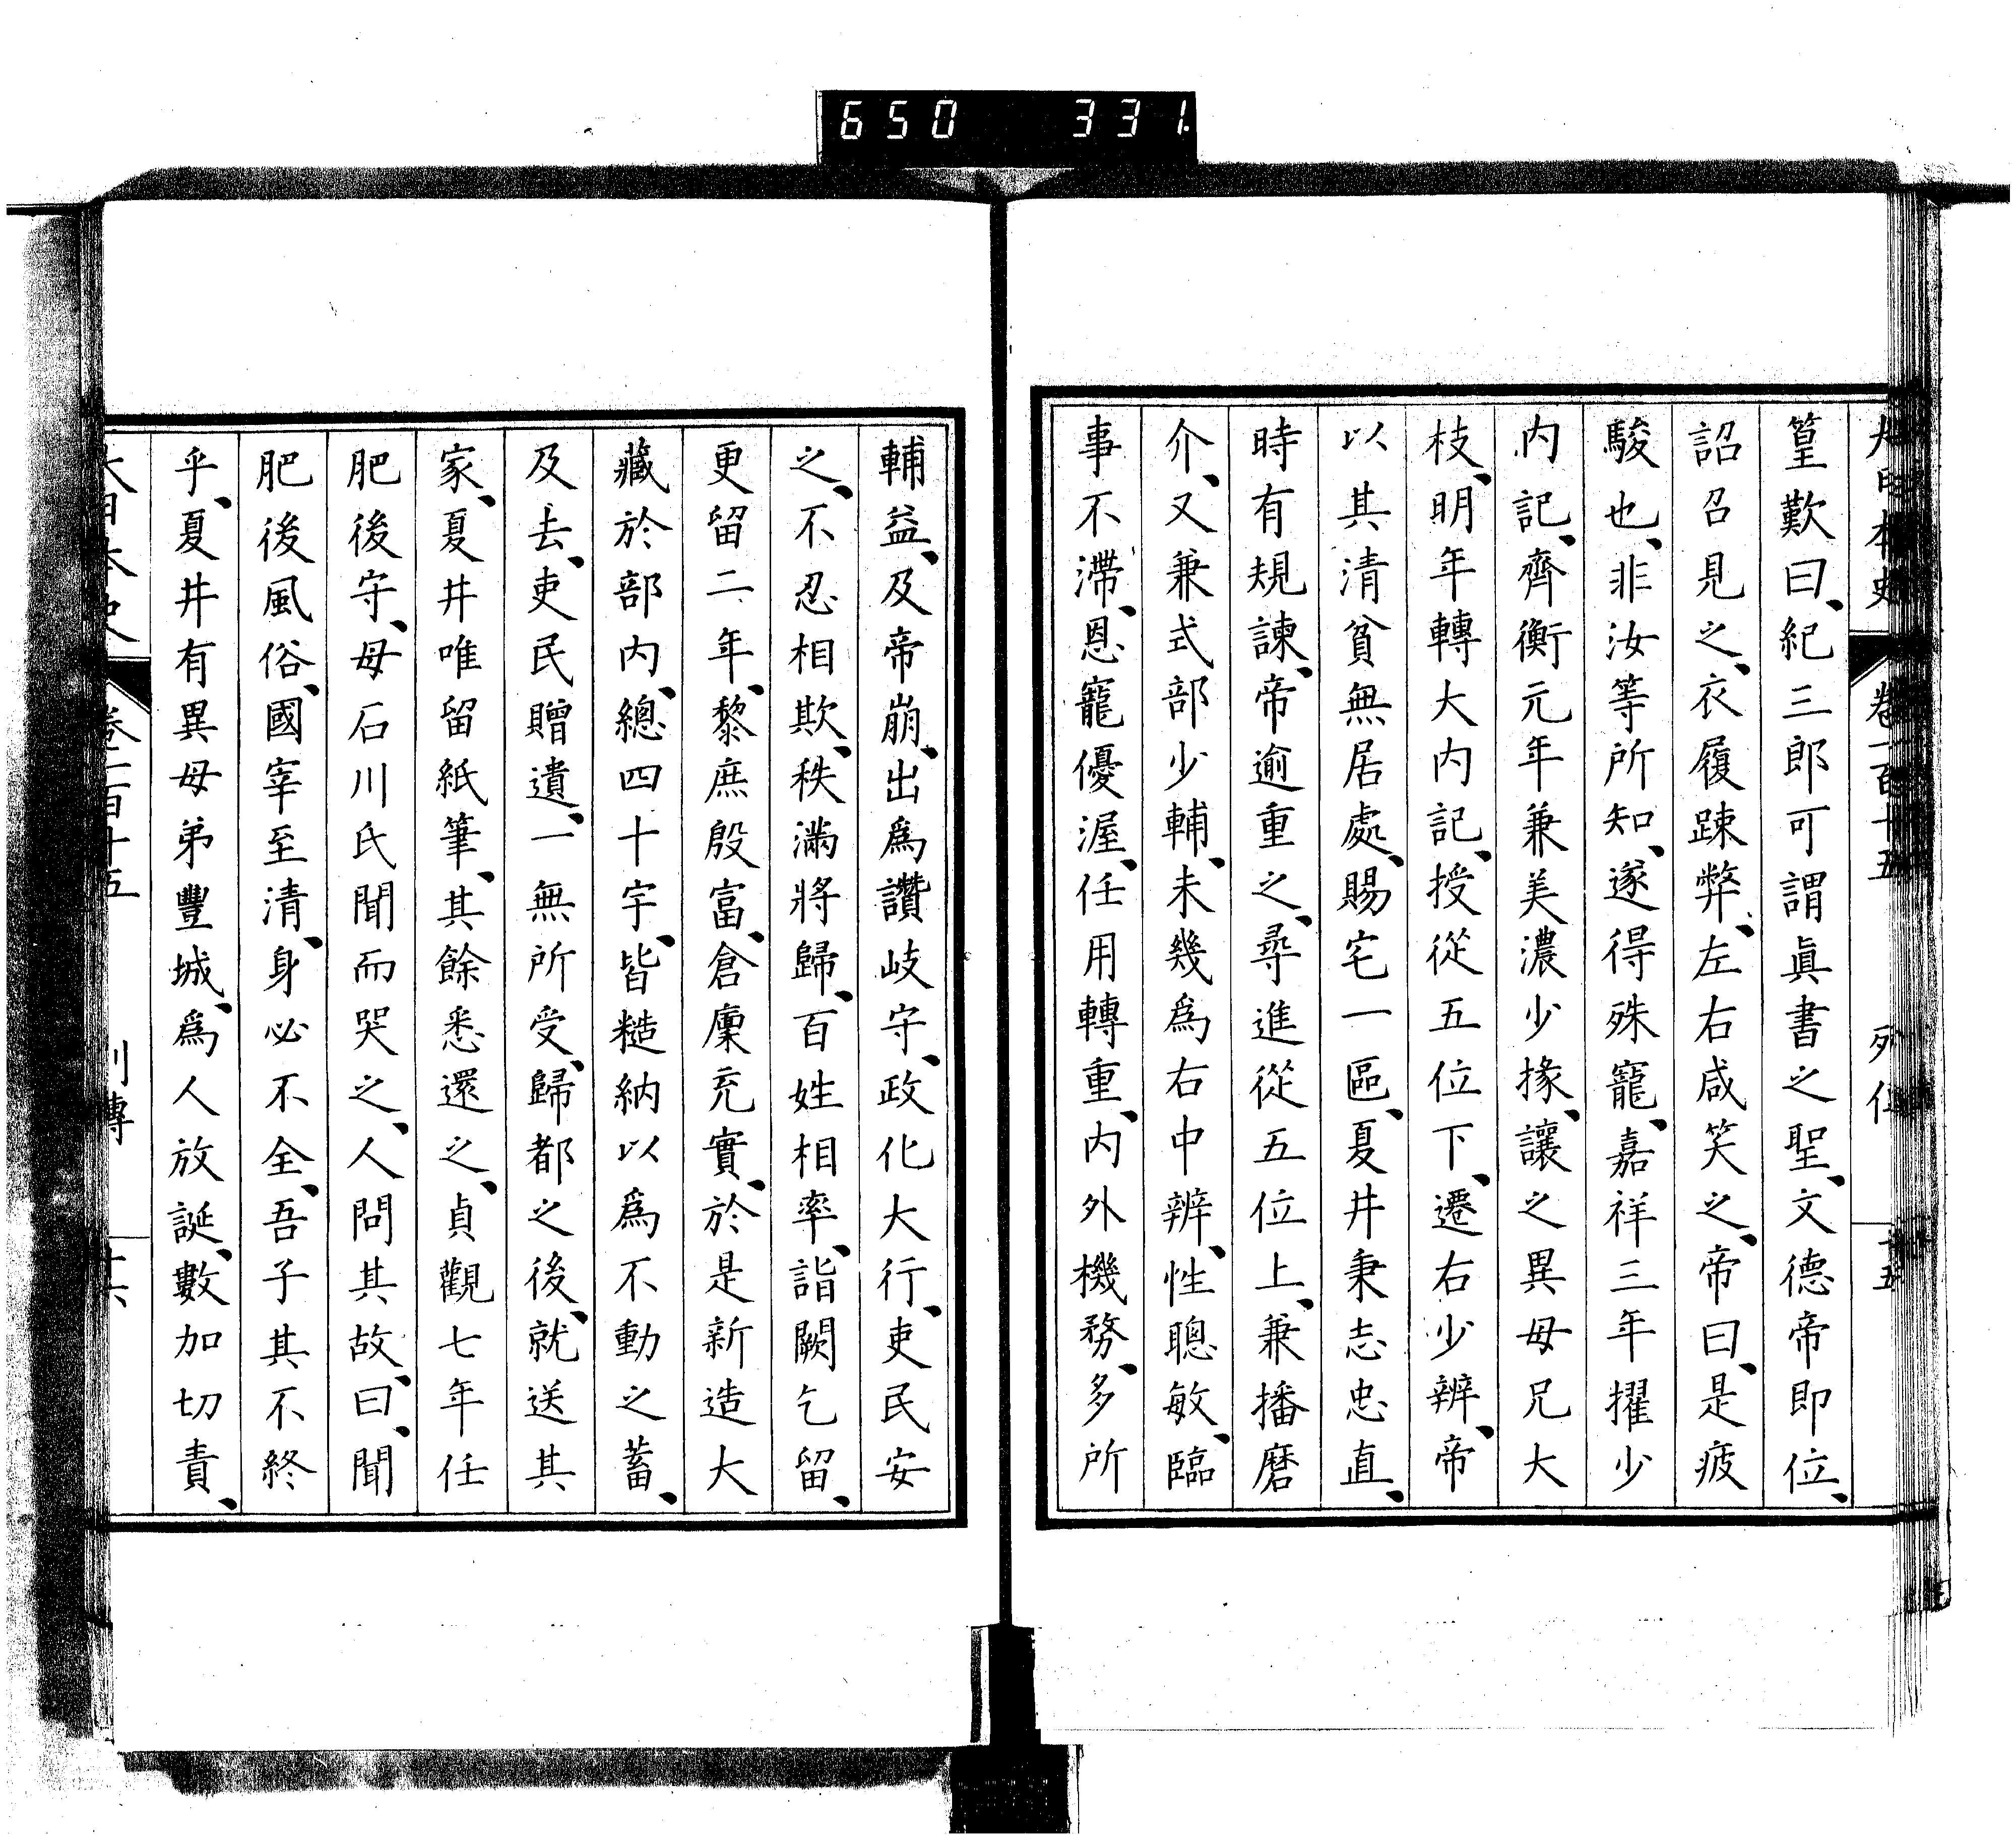 650 331
大日本史 卷一百十五 列傳 十五
篁歎曰、紀三郎可謂眞書之聖、文德帝即位、
詔召見之、衣履踈弊、左右咸笑之、帝曰、是疲
駿也、非汝等所知、遂得殊寵、嘉祥三年擢少
内記、齊衡元年兼美濃少掾、讓之異母兄大
枝、明年轉大内記、授從五位下、遷右少辨、帝
以其清貧無居處、賜宅一區、夏井秉志忠直、
時有規諫、帝逾重之、尋進從五位上、兼播磨
介、又兼式部少輔、未幾爲右中辨、性聰敏、臨
事不滯、恩寵優渥、任用轉重、内外機務、多所
輔益、及帝崩、出爲讚岐守、政化大行、吏民安
之、不忍相欺、秩滿將歸、百姓相率、詣闕乞留、
更留二年、黎庶殷富、倉廩充實、於是新造大
藏於部内、總四十宇、皆糙納以爲不動之蓄、
及去、吏民贈遺、一無所受、歸都之後、就送其
家、夏井唯留紙筆、其餘悉還之、貞觀七年任
肥後守、母石川氏聞而哭之、人問其故、曰、聞
肥後風俗、國宰至清、身必不全、吾子其不終
乎、夏井有異母弟豐城、爲人放誕、數加切責、
大日本史 卷一百十五 列傳 十六